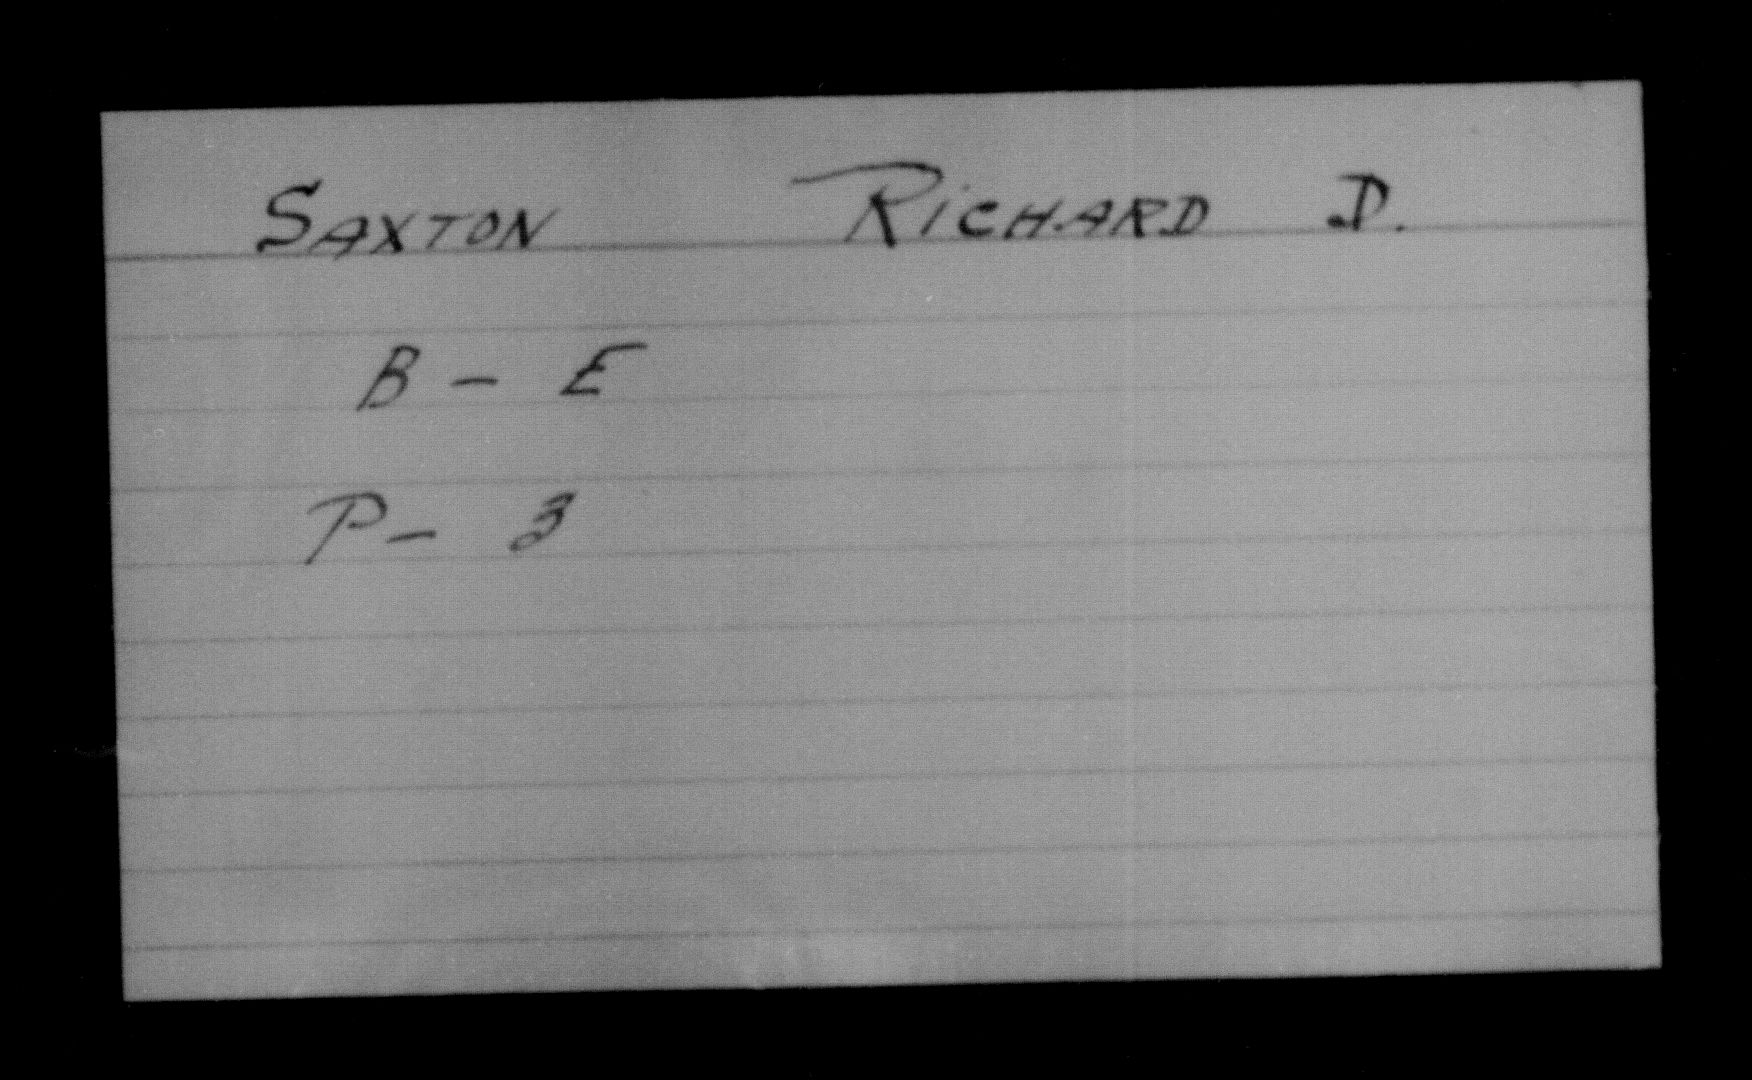 SAXTON RICHARD D.
B - E
P - 3